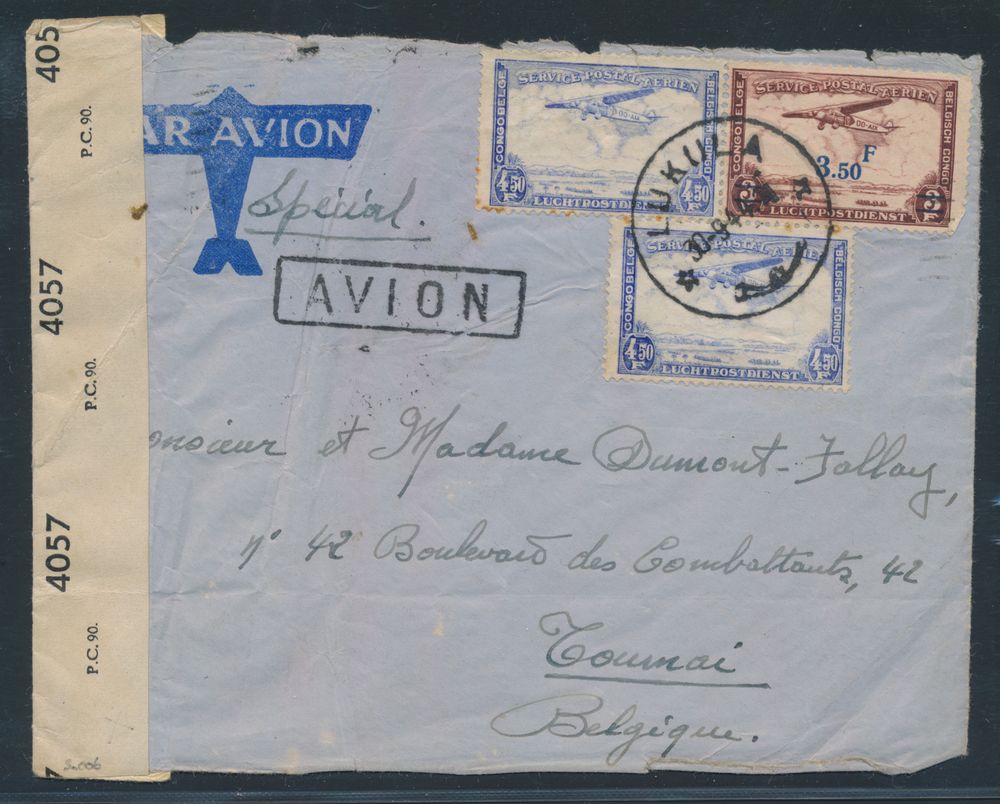 4057
P.C. 90.
4057
P.C. 90.
4057
P.C. 90.
AR AVION
Spécial.
AVION
SERVICE POSTAL AERIEN
CONGO BELGE
BELGISCH CONGO
OO-AIX
4.50 F
4.50 F
LUCHTPOSTDIENST
SERVICE POSTAL AERIEN
CONGO BELGE
BELGISCH CONGO
OO-AIX
3.50 F
3 F
LUCHTPOSTDIENST
30-9-44
SERVICE POSTAL AERIEN
CONGO BELGE
BELGISCH CONGO
4.50 F
4.50 F
LUCHTPOSTDIENST
onsieur et Madame Dumont-Fallay,
n° 42 Boulevard des Combattants, 42
Tournai
Belgique.